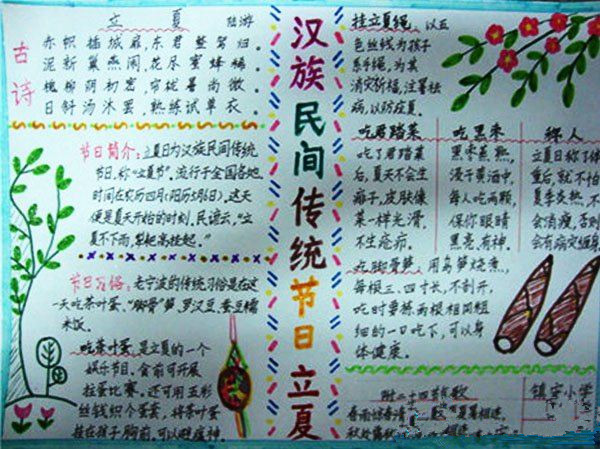 汉族民间传统节日立夏
古诗
立夏 陆游
赤帜插城扉,东君整驾归。
泥新巢燕闹,花尽蜜蜂稀。
槐柳阴初密,帘栊暑尚微。
日斜汤沐罢,熟练试单衣。
节日简介:立夏日为汉族民间传统
节日,称“立夏节”,流行于全国各地,
时间在农历四月(阳历5月6日),这天
便是夏天开始的时刻,民谚云,“立
夏不下雨,犁耙高挂起。”
节日习俗:老宁波的传统习俗是在这
一天吃茶叶蛋、“脚骨”笋、罗汉豆、蚕豆糯
米饭。
吃茶叶蛋 是立夏的一个
娱乐节目,食前可开展
拄蛋比赛。还可用五彩
丝钱织个蛋套,将茶叶蛋
挂在孩子胸前,可以避瘟神。
挂立夏绳,以五
色丝钱为孩子
系手绳,为其
消灾祈福,注暑祛
病,以防疰夏。
吃君踏菜
吃了君踏菜
后,夏天不会生
痱子,皮肤像
菜一样光滑,
不生疮疖。
吃黑枣
黑枣蒸熟,
浸于黄酒中,
每人吃两颗,
保你眼睛
黑亮,有神。
秤人
立夏日称了体
重后,就不怕
夏季炎热,不
会消瘦,否则
会有病灾缠身
吃脚骨笋,用乌笋烧煮,
每根三、四寸长,不剖开,
吃时要拣两根相同粗
细的一口吃下,可以身
体健康。
附二十四节歌
春雨惊春清 夏暑相连
秋处露秋
镇宁小学